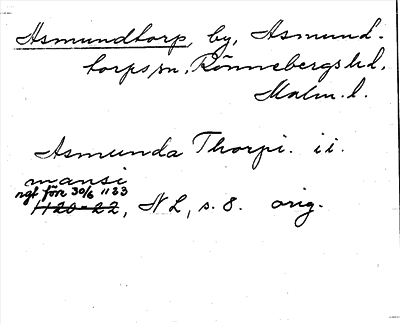 Asmundtorp, by, Asmund-
torps sn, Rönnebergs hd,
Malm. l.
Asmunda Thorpi. ii.
mansi
ngt före 30/6 1133
1120-22, NL, s. 8. orig.